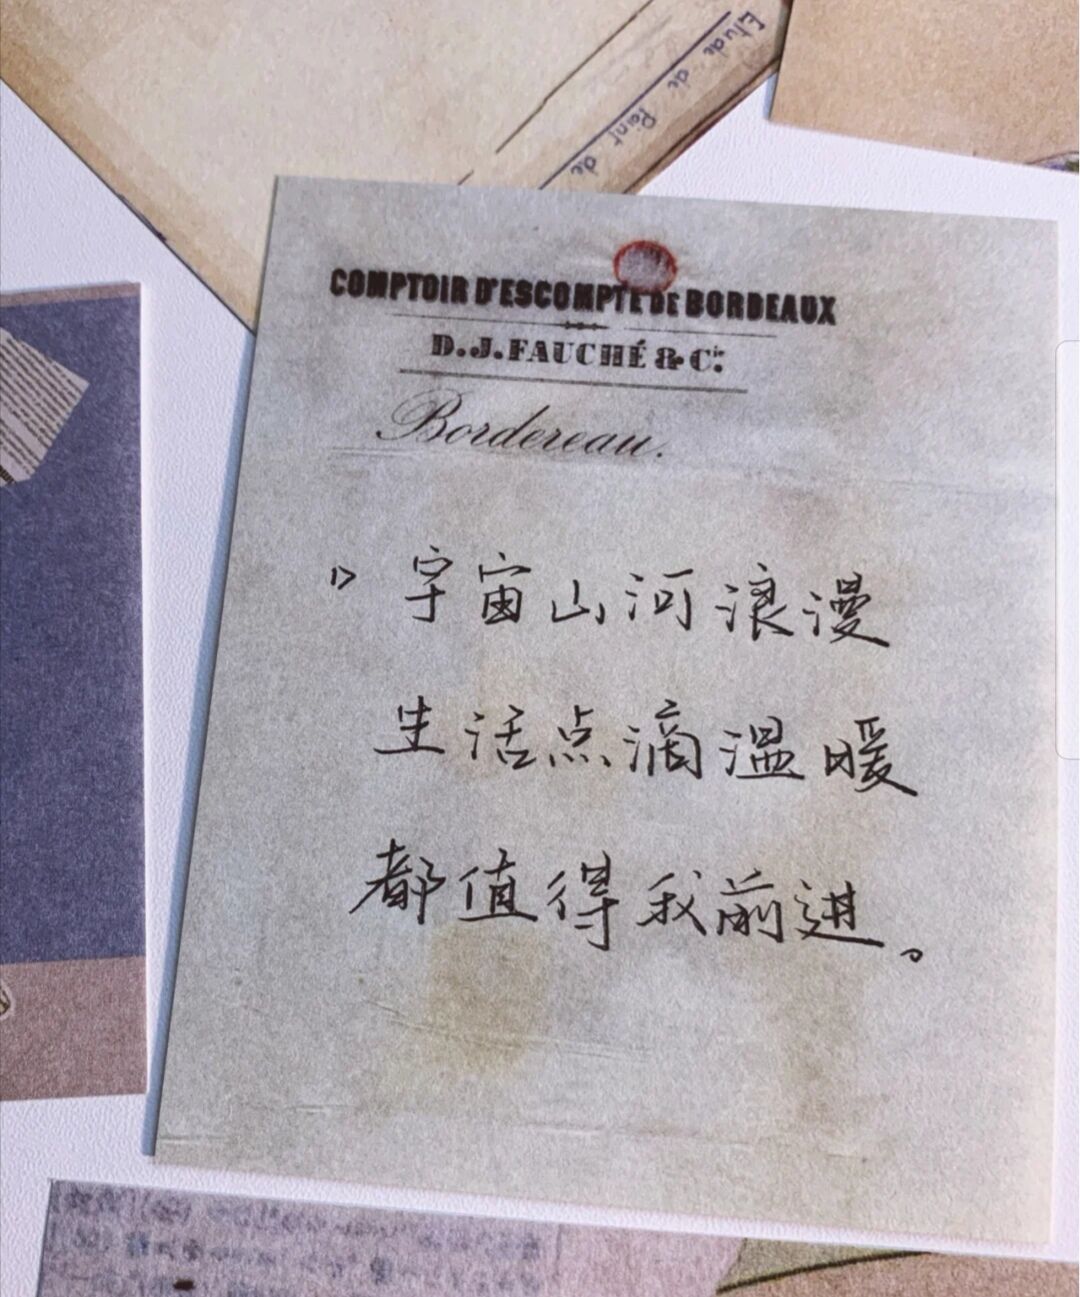 Etude de Point de
COMPTOIR D'ESCOMPTE DE BORDEAUX
D.J. FAUCHÉ & Cie.
Bordereau.
” 宇宙山河浪漫
生活点滴温暖
都值得我前进。